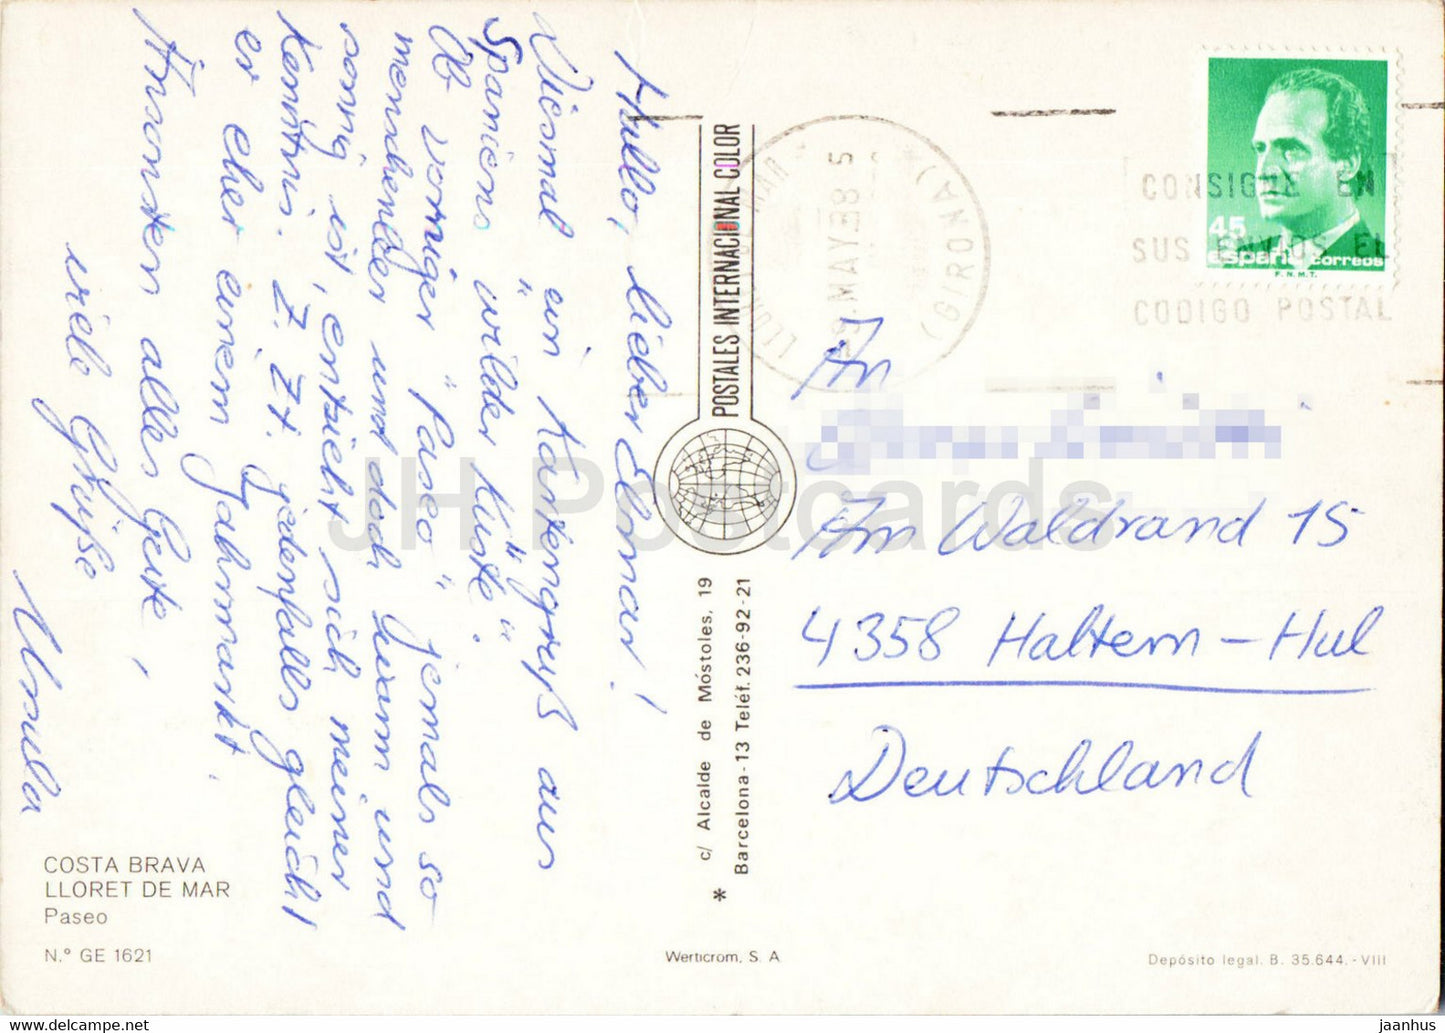 Hallo, lieber Elmar!
Diesmal ein Kartengruß aus
Spaniens "wilder Küste".
Ob voriger "Paseo" jemals so
menschenleer und doch warm und
sonnig ist, entzieht sich meiner
Kenntnis. Z. Zt. jedenfalls gleicht
er eher einem Jahrmarkt.
Ansonsten alles Gute,
viele Grüße
Ursula
COSTA BRAVA
LLORET DE MAR
Paseo
N.° GE 1621
POSTALES INTERNACIONAL COLOR
* c/ Alcalde de Móstoles, 19
Barcelona-13 Teléf. 236-92-21
Werticrom, S. A
45
españa correos
F.N.M.T.
MAY 88
(GIRONA)
CONSIGNE EN
SUS ENVIOS EL
CODIGO POSTAL
An
Am Waldrand 15
4358 Haltern-Hul
Deutschland
Depósito legal. B. 35.644.-VIII
JH Postcards
hippostcard.com
jaanhus